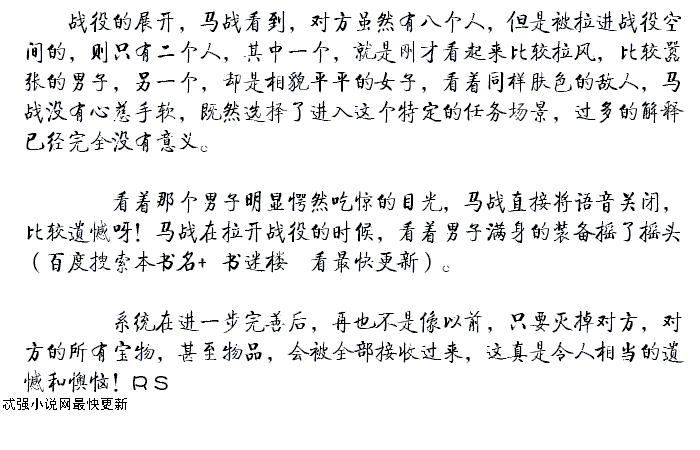 战役的展开，马战看到，对方虽然有八个人，但是被拉进战役空
间的，则只有二个人，其中一个，就是刚才看起来比较拉风，比较嚣
张的男子，另一个，却是相貌平平的女子，看着同样肤色的敌人，马
战没有心慈手软，既然选择了进入这个特定的任务场景，过多的解释
已经完全没有意义。
看着那个男子明显愕然吃惊的目光，马战直接将语音关闭，
比较遗憾呀！马战在拉开战役的时候，看着男子满身的装备摇了摇头
（百度搜索本书名+ 书迷楼 看最快更新）。
系统在进一步完善后，再也不是像以前，只要灭掉对方，对
方的所有宝物，甚至物品，会被全部接收过来，这真是令人相当的遗
憾和懊恼！RS
忒强小说网最快更新